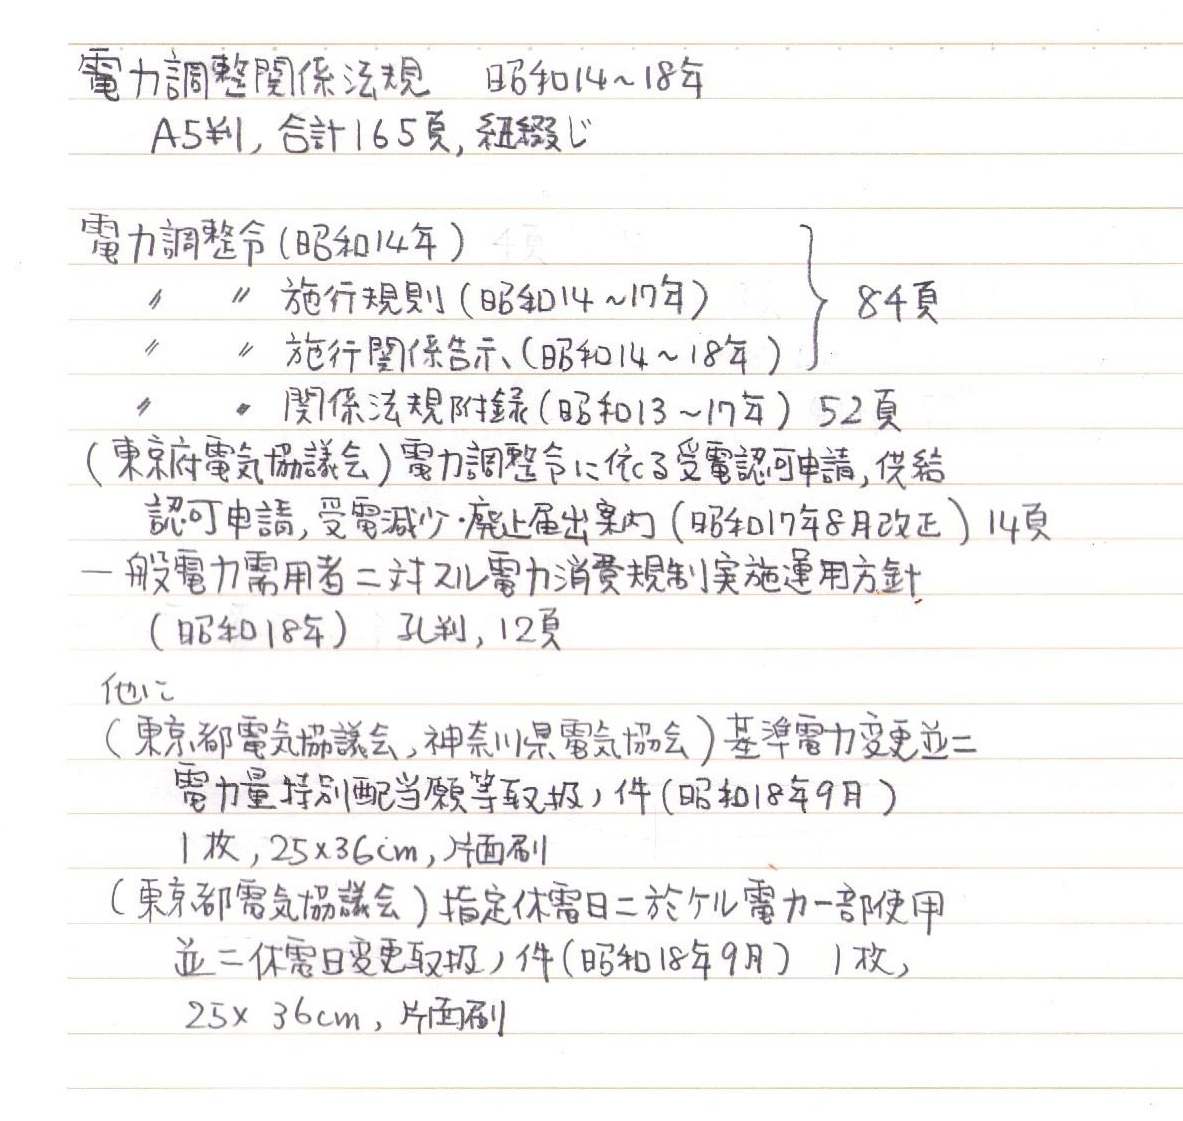 電力調整関係法規　昭和14～18年
A5判, 合計165頁, 紐綴じ
電力調整令(昭和14年)
〃　〃　施行規則(昭和14～17年)　84頁
〃　〃　施行関係告示(昭和14～18年)
〃　〃　関係法規附録(昭和13～17年) 52頁
(東京府電気協議会)電力調整令に依る受電認可申請, 供給
認可申請, 受電減少・廃止届出案内(昭和17年8月改正) 14頁
一般電力需用者ニ対スル電力消費規制実施運用方針
(昭和18年)　孔判, 12頁
他に
(東京都電気協議会, 神奈川県電気協会)基準電力変更並ニ
電力量特別配当願等取扱ノ件(昭和18年9月)
1枚, 25×36cm, 片面刷
(東京都電気協議会)指定休電日ニ於ケル電力一部使用
並ニ休電日変更取扱ノ件(昭和18年9月)　1枚,
25× 36cm, 片面刷